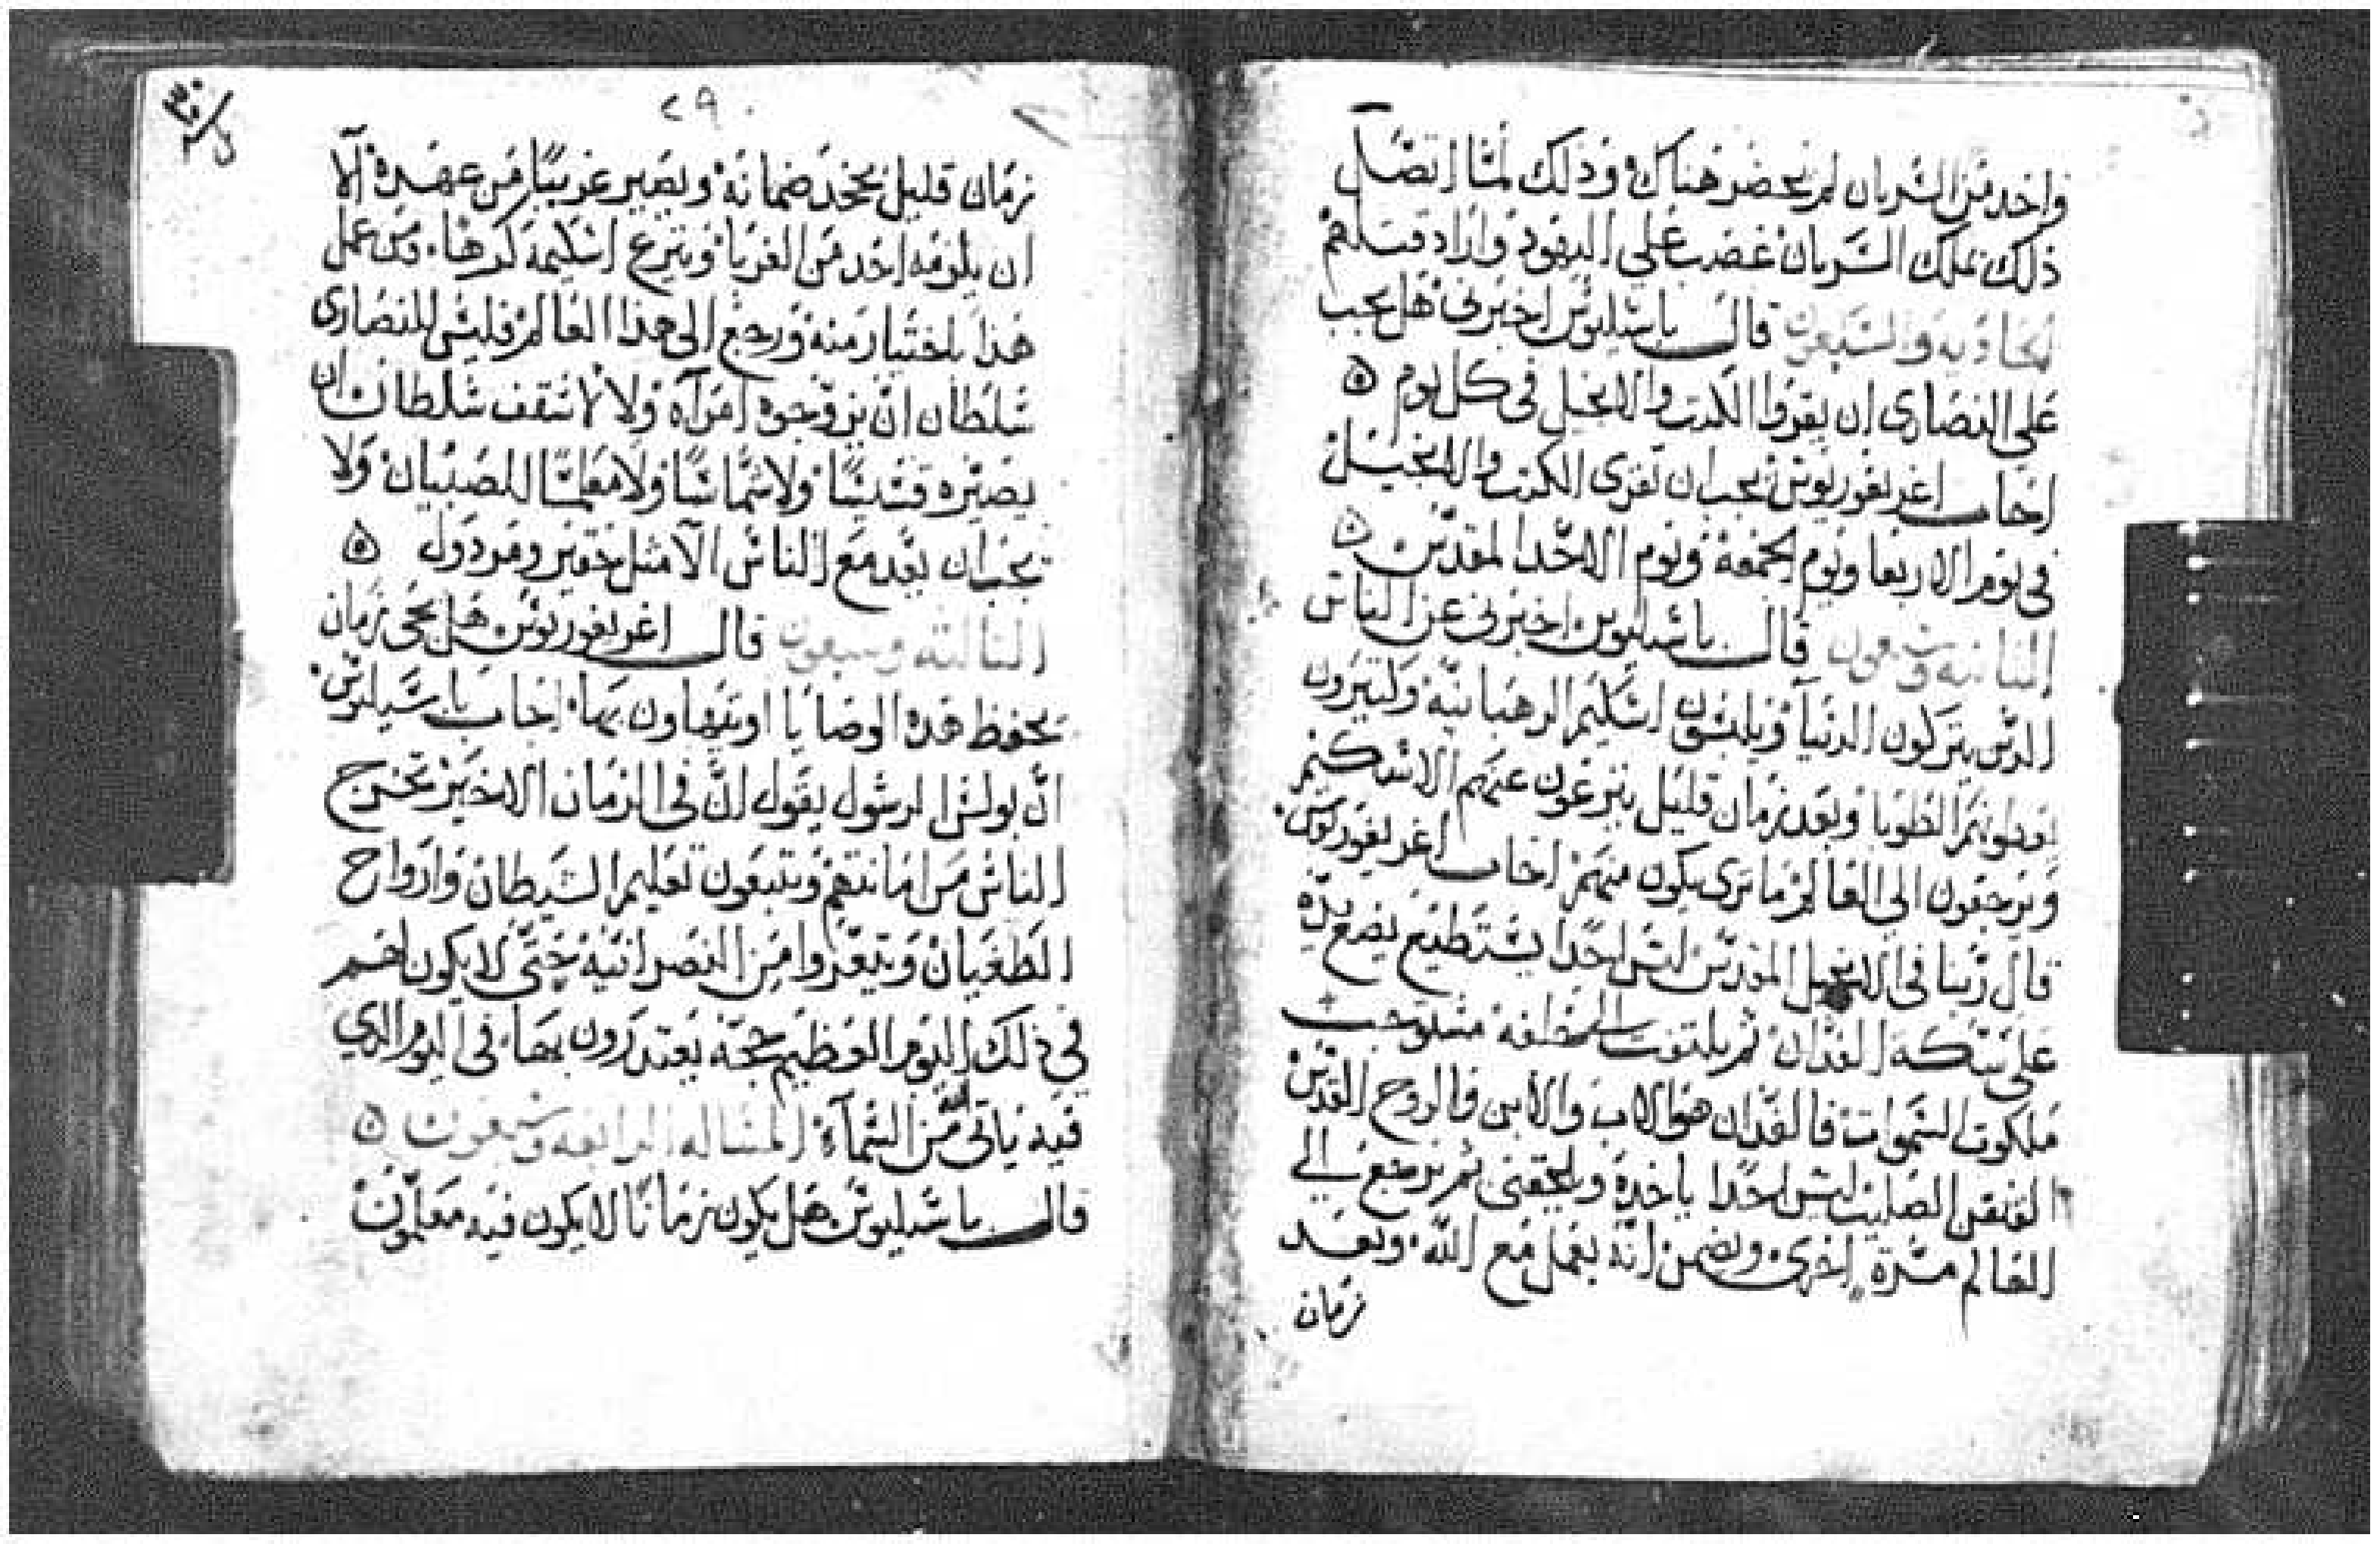 واحد من السريان لم يحضر هناك وذلك لما اتصل
ذلك بملك السريان غضب على اليهود واراد قتلهم
الحاديه والسبعون قال باسيليوس اخبرني هل يجب
على النصارى ان يقروا الكتب والانجيل في كل يوم ه
اجاب اغريغوريوس يجب ان تقرى الكتب والانجيل
في يوم الاربعا ويوم الجمعة ويوم الاحد المقدس ه
الثانيه وسبعون قال باسيليوس اخبرني عن الناس
الدين يتركون الدنيا ويلبسون اسكيم الرهبانية
الطوبا وبعد زمان قليل ينزعون عنهم الاسكيم
ويرجعون الى العالم ما ترى يكون منهم اجاب اغريغوريوس
قال ربنا في الانجيل المقدس ليس احدا يستطيع يضع يده
على سكة الفدان ثم يلتفت الى خلفه مستوجب
ملكوت السموات فالفدان هو الاب والابن والروح القدس
الصليب ليس احدا ياخده ويلحقني ثم يرجع الى
العالم مرة اخرى ويضمن انه يعمل مع الله وبعد
زمان
٢٩
زمان قليل يجحد ضمانه ويصير غريبا من عهده الا
ان يلزمه احد من الغربا وينزع اسكيمه كرها ومن عمل
هذا باختيار منه ورجع الى هذا العالم فليس للنصارى
سلطان ان يزوجوه امراه ولا لاسقف سلطان ان
يصيره قسيسا ولا شماسا ولا معلما للصبيان ولا
يجب ان يعد مع الناس الا مثل حقير ومردول ه
الثالثة وسبعون قال اغريغوريوس هل يجى زمان
يحفظ هده الوصايا او يتهاون بها اجاب باسيليوس
ان بولس الرسول يقول ان في الزمان الاخير تخرج
الناس من امانتهم ويتبعون تعليم الشيطان وارواح
الطغيان ويتعروا من النصرانية حتى لا يكون لهم
في ذلك اليوم العظيم حجة يعتدرون بها في اليوم الدي
فيه ياتي الله من السماء المساله الرابعه وسبعون ه
قال باسيليوس هل يكون زمانا لا يكون فيه معلمون